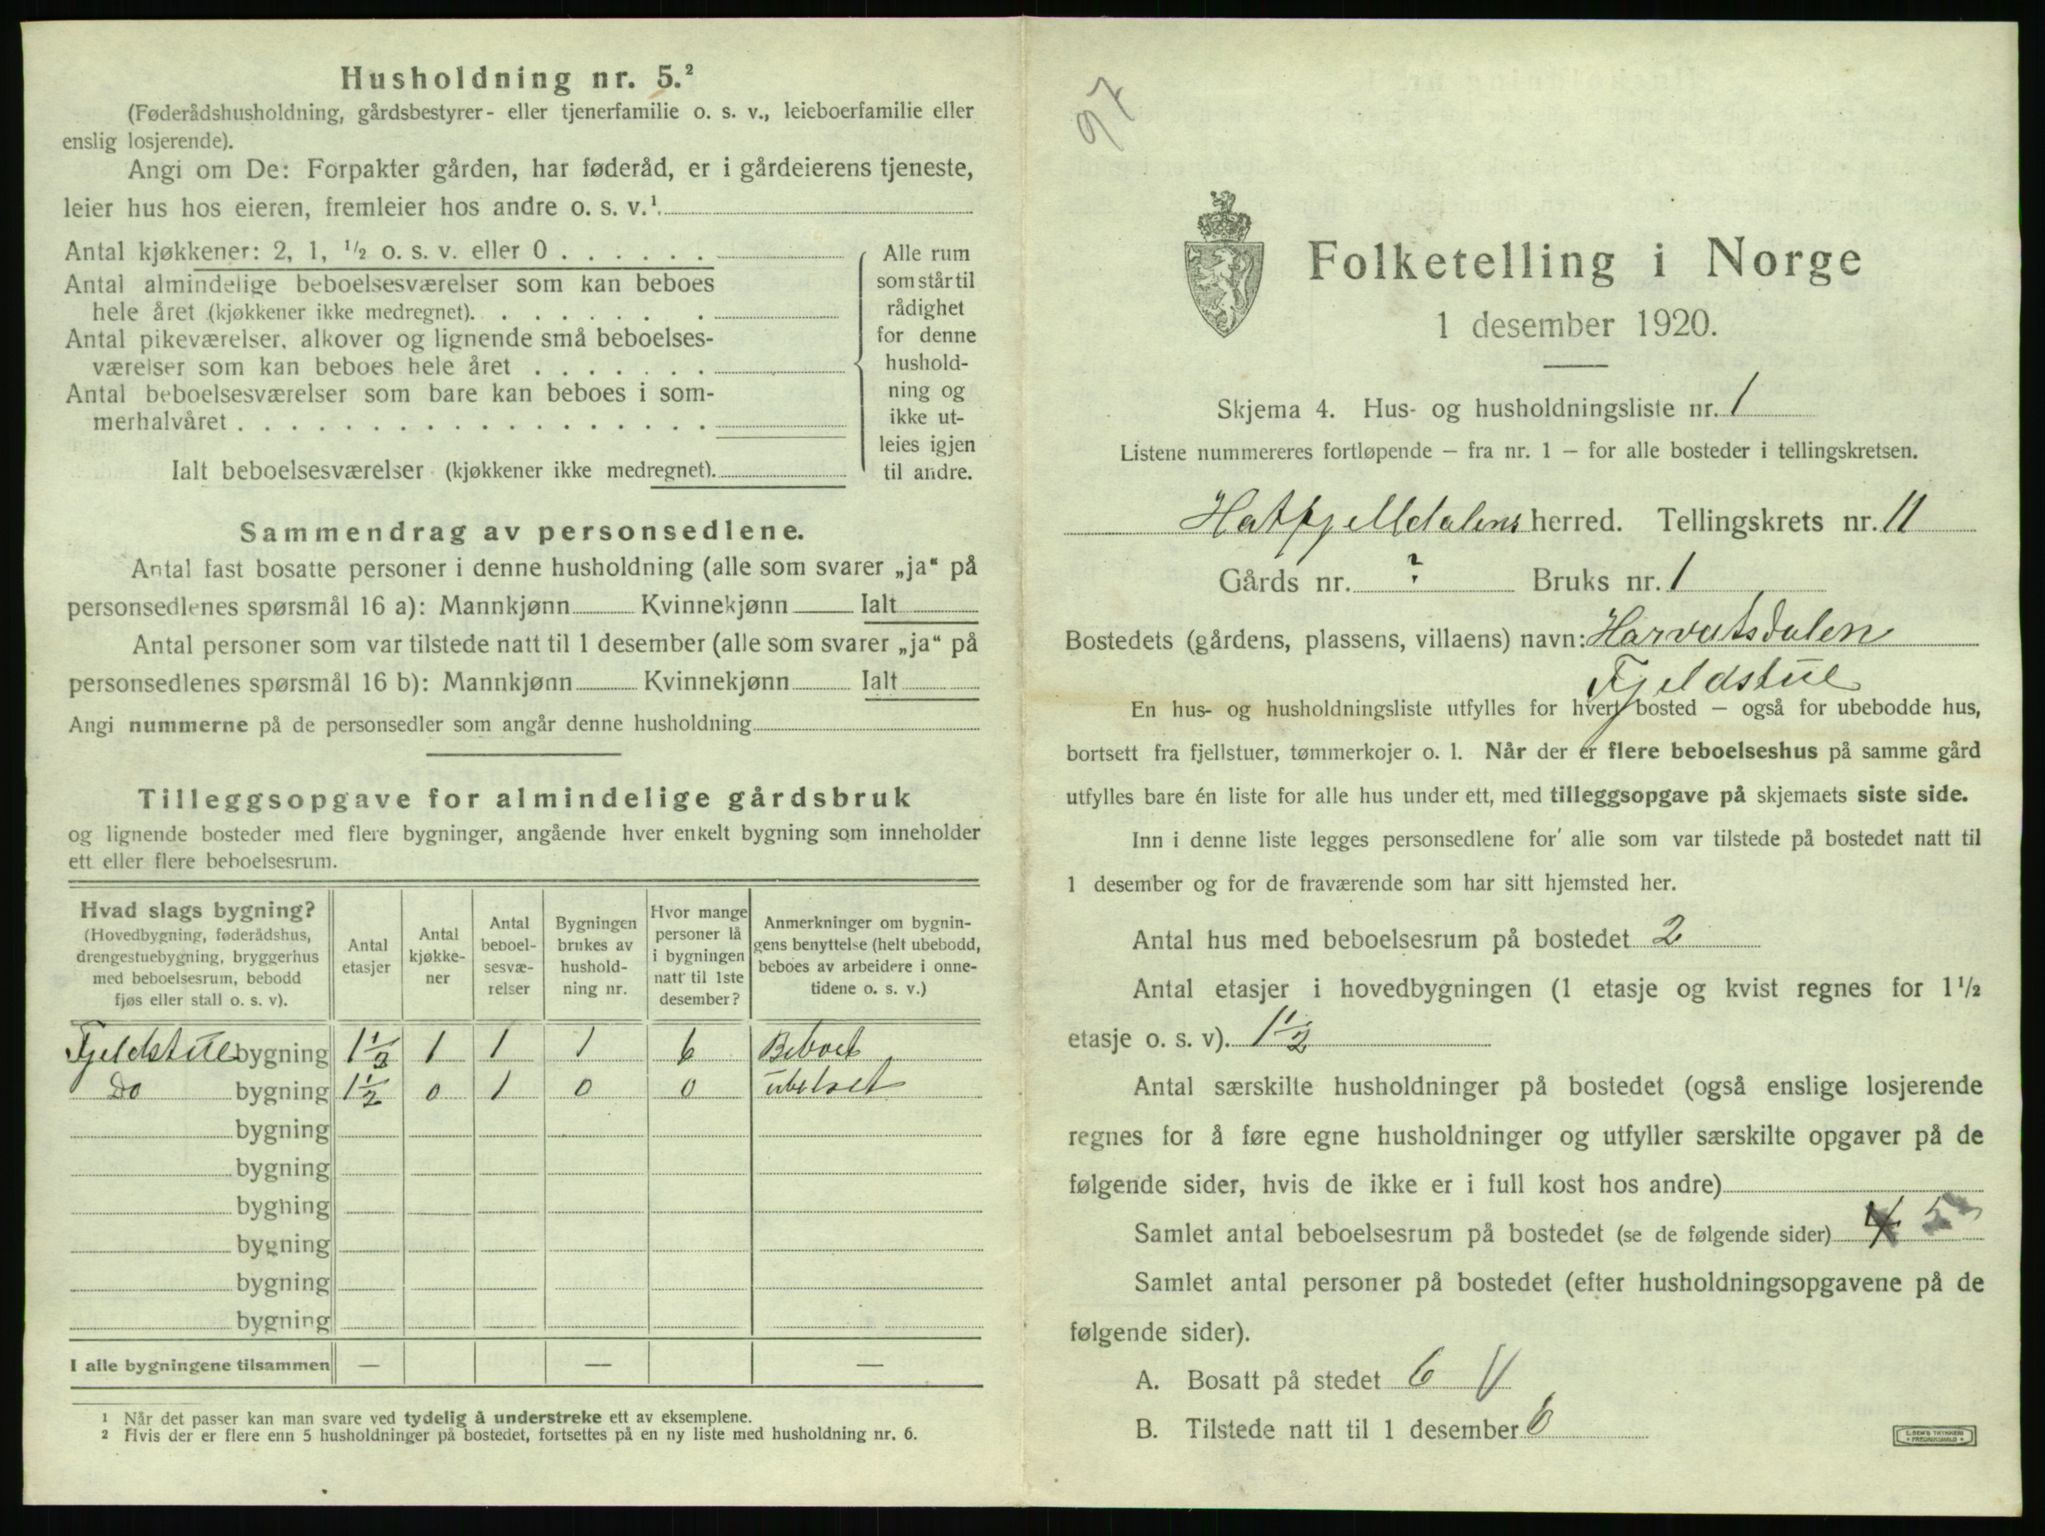 Husholdning nr. 5.²
(Føderådshusholdning, gårdsbestyrer- eller tjenerfamilie o. s. v., leieboerfamilie eller
enslig losjerende).
Angi om De: Forpakter gården, har føderåd, er i gårdeierens tjeneste,
leier hus hos eieren, fremleier hos andre o. s. v.¹
Antal kjøkkener: 2, 1, ½ o. s. v. eller 0 . . . . . .
Antal almindelige beboelsesværelser som kan beboes
hele året (kjøkkener ikke medregnet). . . . . . . .
Antal pikeværelser, alkover og lignende små beboelses-
værelser som kan beboes hele året . . . . . . .
Antal beboelsesværelser som bare kan beboes i som-
merhalvåret . . . . . . . . . . . . . . . . . .
Ialt beboelsesværelser (kjøkkener ikke medregnet).
Alle rum
som står til
rådighet
for denne
hushold-
ning og
ikke ut-
leies igjen
til andre.
Sammendrag av personsedlene.
Antal fast bosatte personer i denne husholdning (alle som svarer „ja“ på
personsedlenes spørsmål 16 a): Mannkjønn Kvinnekjønn Ialt
Antal personer som var tilstede natt til 1 desember (alle som svarer „ja“ på
personsedlenes spørsmål 16 b): Mannkjønn Kvinnekjønn Ialt
Angi nummerne på de personsedler som angår denne husholdning
Tilleggsopgave for almindelige gårdsbruk
og lignende bosteder med flere bygninger, angående hver enkelt bygning som inneholder
ett eller flere beboelsesrum.
Hvad slags bygning?
(Hovedbygning, føderådshus,
drengestuebygning, bryggerhus
med beboelsesrum, bebodd
fjøs eller stall o. s. v).
Antal
etasjer
Antal
kjøkke-
ner
Antal
beboel-
sesvæ-
relser
Bygningen
brukes av
hushold-
ning nr.
Hvor mange
personer lå
i bygningen
natt til 1ste
desember?
Anmerkninger om bygnin-
gens benyttelse (helt ubebodd,
beboes av arbeidere i onne-
tidene o. s. v.)
Fjeldstue bygning 1½ 1 1 1 6 Beboet
Do bygning 1½ 0 1 0 0 ubeboet
bygning
bygning
bygning
bygning
bygning
bygning
I alle bygningene tilsammen — — —
1 Når det passer kan man svare ved tydelig å understreke ett av eksemplene.
2 Hvis der er flere enn 5 husholdninger på bostedet, fortsettes på en ny liste med husholdning nr. 6.
97
Folketelling i Norge
1 desember 1920.
Skjema 4. Hus- og husholdningsliste nr. 1
Listene nummereres fortløpende — fra nr. 1 — for alle bosteder i tellingskretsen.
Hatfjelldalens herred. Tellingskrets nr. 11
Gårds nr. ? Bruks nr. 1
Bostedets (gårdens, plassens, villaens) navn: Harvatsdalen
Fjeldstue
En hus- og husholdningsliste utfylles for hvert bosted — også for ubebodde hus,
bortsett fra fjellstuer, tømmerkojer o. l. Når der er flere beboelseshus på samme gård
utfylles bare én liste for alle hus under ett, med tilleggsopgave på skjemaets siste side.
Inn i denne liste legges personsedlene for alle som var tilstede på bostedet natt til
1 desember og for de fraværende som har sitt hjemsted her.
Antal hus med beboelsesrum på bostedet 2
Antal etasjer i hovedbygningen (1 etasje og kvist regnes for 1½
etasje o. s. v). 1½
Antal særskilte husholdninger på bostedet (også enslige losjerende
regnes for å føre egne husholdninger og utfyller særskilte opgaver på de
følgende sider, hvis de ikke er i full kost hos andre)
Samlet antal beboelsesrum på bostedet (se de følgende sider) 4 5
Samlet antal personer på bostedet (efter husholdningsopgavene på de
følgende sider).
A. Bosatt på stedet 6
B. Tilstede natt til 1 desember 6